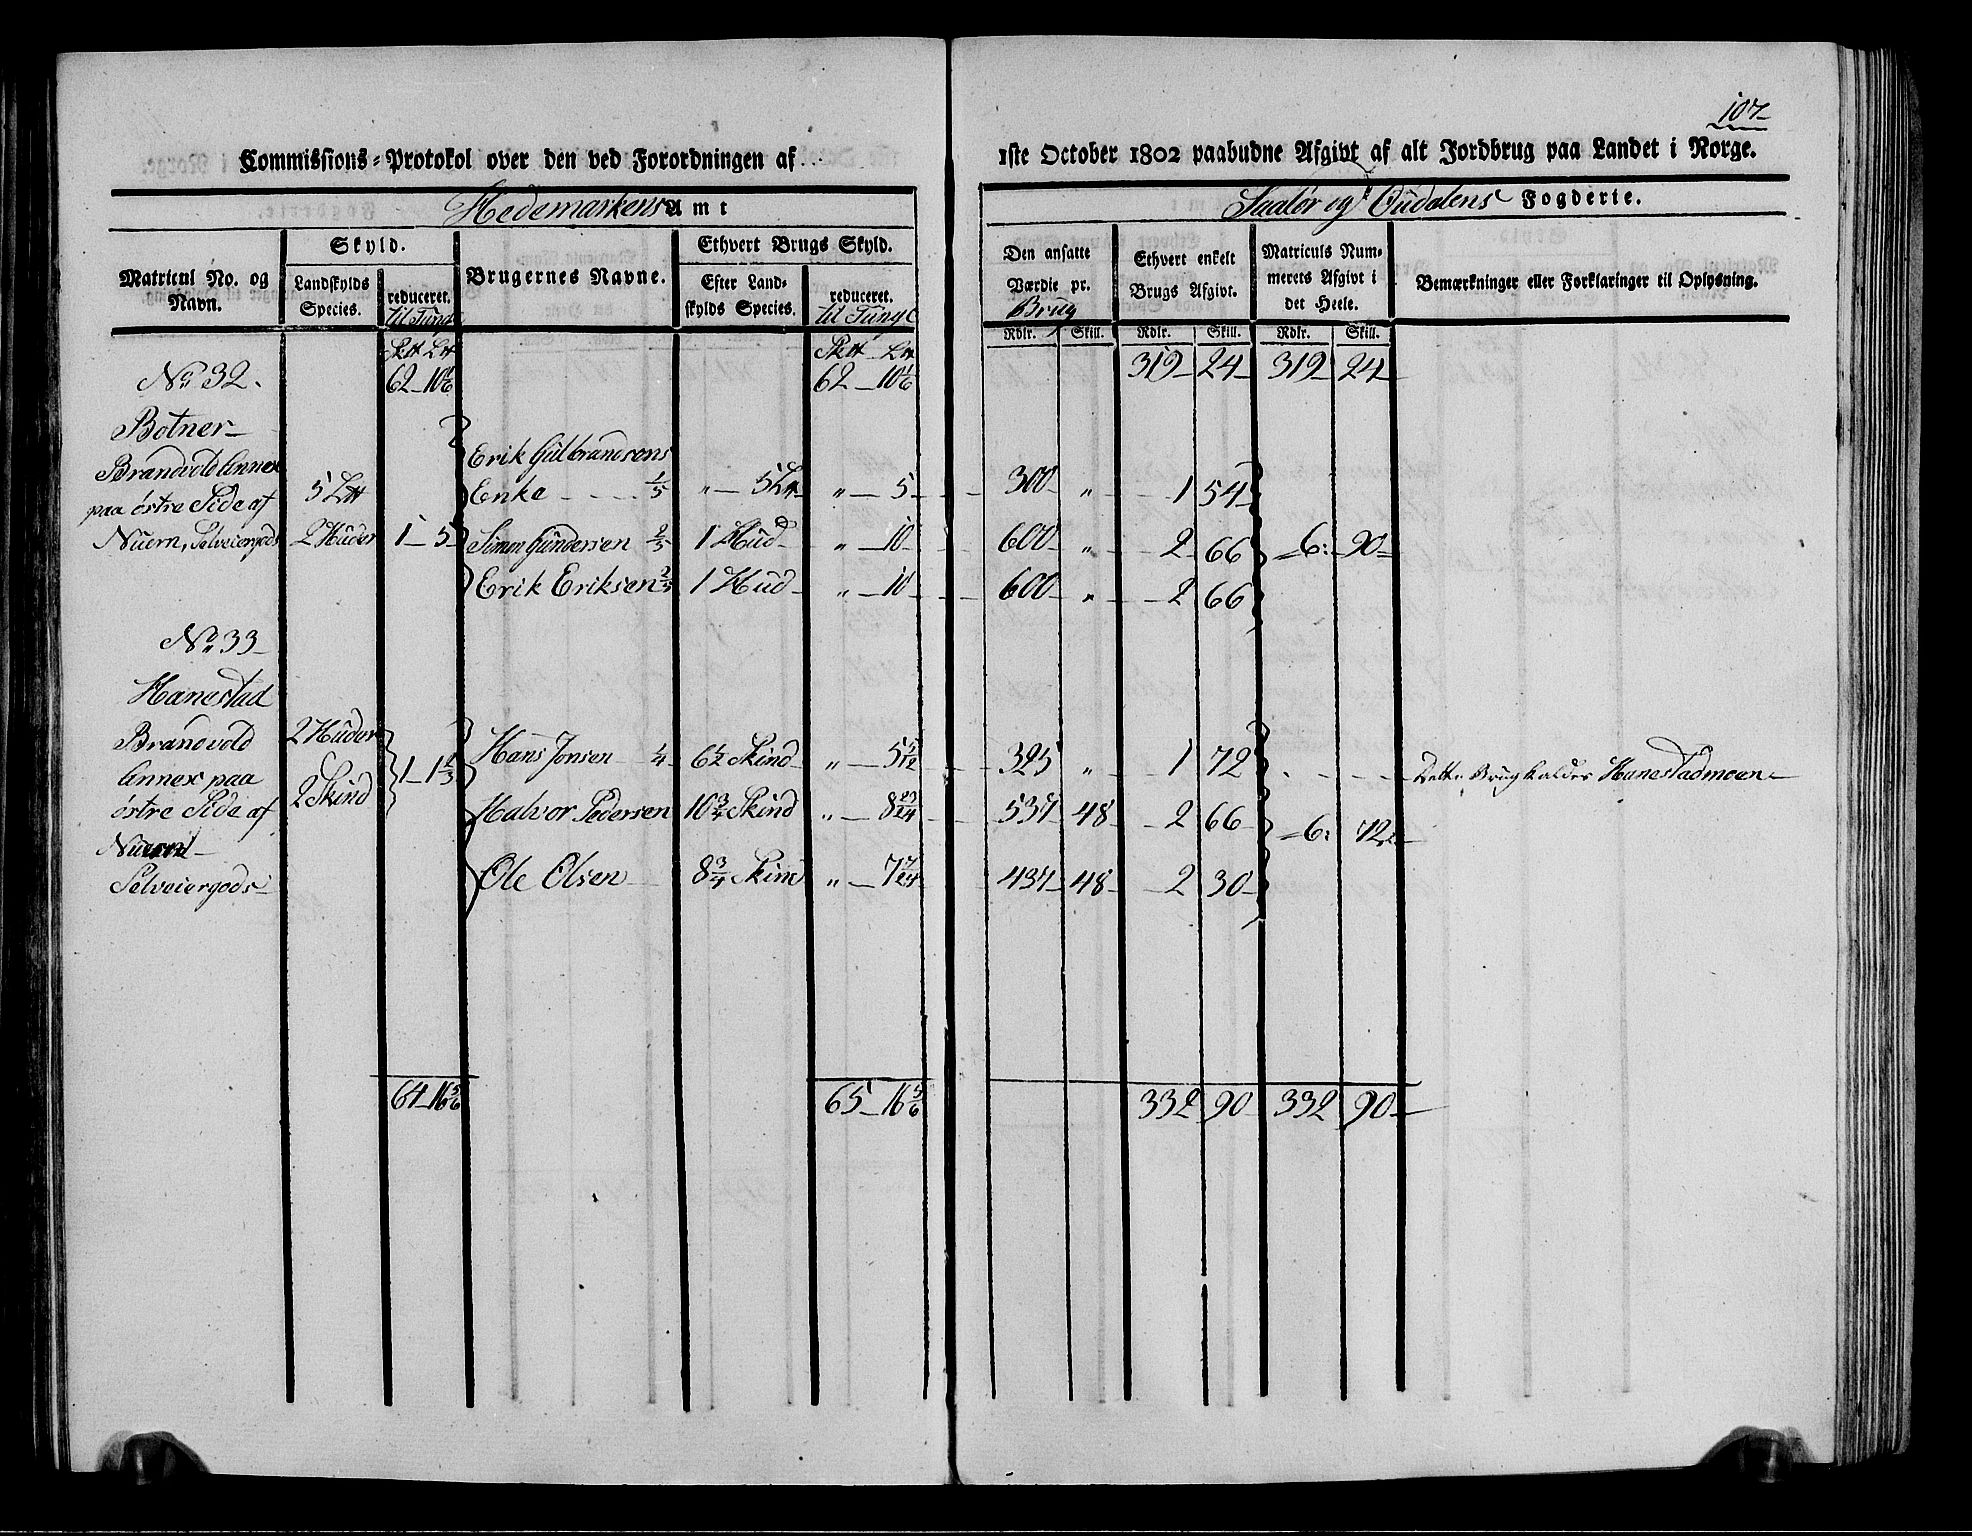 107
Commissions-Protokol over den ved Forordningen af
1ste October 1802 paabudne Afgivt af alt Jordbrug paa Landet i Norge.
Hedemarkens Amt
Saalør og Oudalens Fogderie.
Matricul No. og Navn.
Skyld.
Landskylds Species.
reduceret. til Tunge
Brugernes Navne.
Ethvert Brugs Skyld.
Efter Land-skylds Species.
reduceret. til Tunge
Den ansatte Værdie pr. Brug
Ethvert enkelt Brugs Afgivt.
Matriculs Nummerets Afgivt i det Heele.
Bemærkninger eller Forklaringer til Oplysning.
Rdlr. Skill. Rdlr. Skill. Rdlr. Skill.
62 10 1/6 62 10 1/6 319 24 319 24
No 32.
Botner
Brandvold Annex
paa östre Side af
Nuern, Selveiergods
5 L℔
2 Huder 1 5
Erik Gulbrandsens
Enke 1/5 " 5 L℔ " 5 300 " 1 54
Simen Gundersen 2/5 1 Hud " 10 600 " 2 66 6: 90
Erik Eriksen 2/5 1 Hud " 10 600 " 2 66
No 33
Hanestad
Brandvold
Annex paa
östre Side af
Nuern
Selveiergods
2 Huder
2 Skind 1 1 1/3
Hans Jonsen 1/4 6 1/2 Skind " 5 5/12 325 " 1 72 Dette Brug kaldes Hanestadmoen
Halvor Pedersen 10 3/4 Skind " 8 23/24 537 48 2 66 6: 72
Ole Olsen 8 3/4 Skind " 7 7/24 437 48 2 30
64 16 5/6 65 16 5/6 332 90 332 90